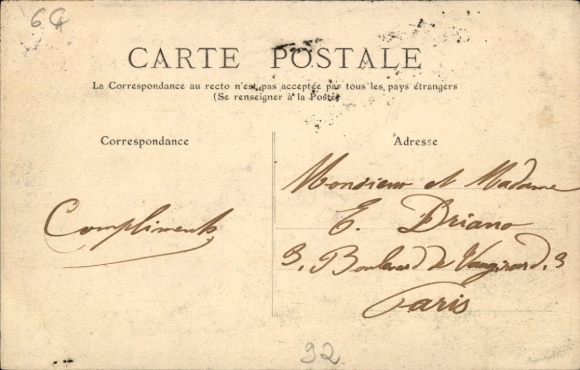 64
CARTE POSTALE
La Correspondance au recto n'est pas acceptée par tous les pays étrangers
(Se renseigner à la Poste)
Correspondance
Compliments
Adresse
Monsieur et Madame
E. Driano
3, Boulevard de Vaugirard, 3
Paris
92